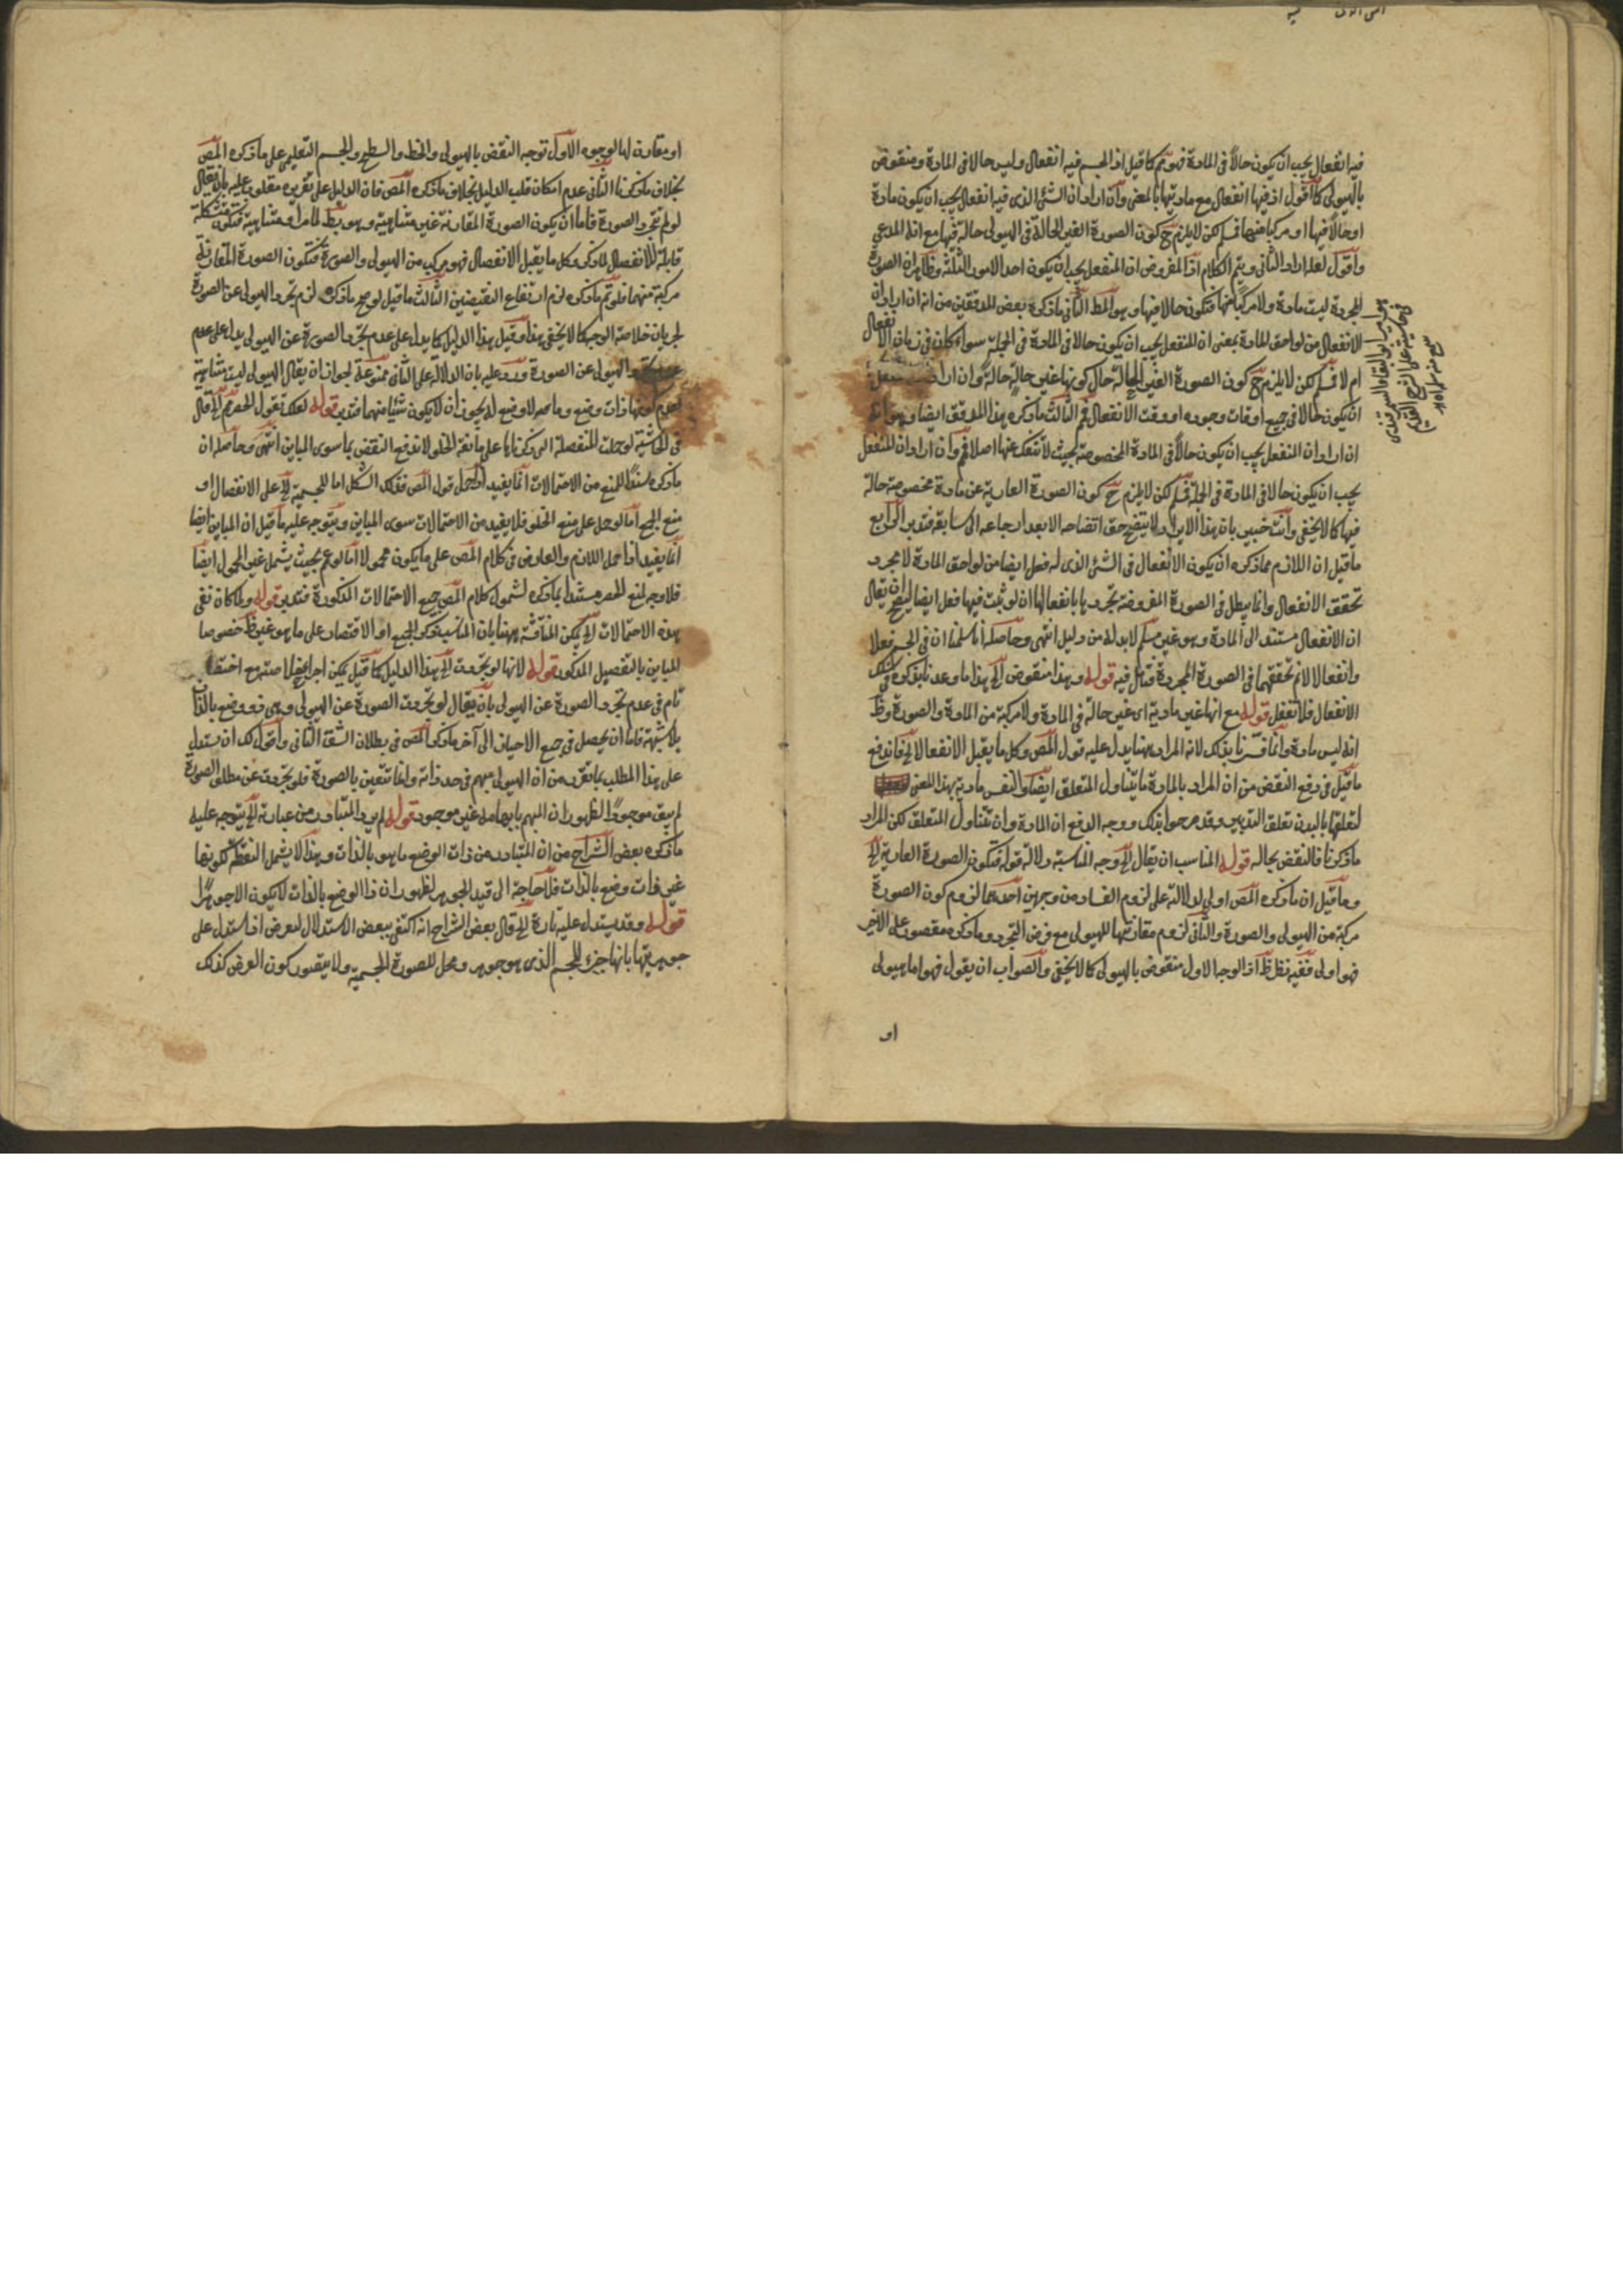 فيه انفعال يجب ان يكون حالا في المادة فهو ثم كما قيل اذ الجسم فيه انفعال وليس حالا في المادة ومنقوض
بالهيولى كما اقول اذ فيها انفعال مع ماديتها بالمعنى وان اراد ان الشئ الذى فيه انفعال يجب ان يكون مادة
او حالا فيها او مركبا منهما فسلم لكن لا يلزم ح كون الصورة الغير الحالة في الهيولى حالة فيها مع انه المدعى
واقول لعله اراد الثانى ويتم الكلام اذ المفروض ان المنفعل يجب ان يكون احد الامور الثلثة وظاهر ان الصورة
المجردة ليست مادة ولا مركبا منها فتكون حالا فيها وهو المط الثانى ما ذكره بعض المدققين من انه ان اراد ان
الانفعال من لواحق المادة بمعنى ان المنفعل يجب ان يكون حالا في المادة في الجملة سواء كان في زمان الانفعال
ام لا فسلم لكن لا يلزم ح كون الصورة الغير الحالة حال كونها غير حالة حالة وان اراد
ان يكون حالا في جميع اوقات وجوده او وقت الانفعال فم الثالث ما ذكره هذا المدقق ايضا وهو انه
ان اراد ان المنفعل يجب ان يكون حالا في المادة المخصوصة بحيث لا تنفك عنها اصلا فم وان اراد ان المنفعل
يجب ان يكون حالا في المادة في الجملة فسلم لكن لا يلزم ح كون الصورة العارية عن مادة مخصوصة حالة
فيها كما لا يخفى وانت خبير بان هذا الايراد لا يتضح حق اتضاحه الا بعد ارجاعه الى سابقه فتدبر الرابع
ما قيل ان اللازم مما ذكره ان يكون الانفعال في الشئ الذى له فعل ايضا من لواحق المادة لا مجرد
تحقق الانفعال وانما يبطل في الصورة المفروضة تجردها بانفعالها ان لو ثبت فيها فعل ايضا ليتضح ان يقال
ان الانفعال مستند الى المادة وهو غير مسلم لا بد له من دليل انتهى وحاصله انا سلمنا ان في الجسم فعلا
وانفعالا لانم تحققهما في الصورة المجردة فتأمل فيه قوله وهذا منقوض الخ هذا ما وعدنا بذكره في
الانفعال فلا تغفل قوله مع انها غير مادية اى غير حالة في المادة ولا مركبة من المادة والصورة وظ
انه ليس مادة وانما فسرنا بذلك لانه المراد ههنا يدل عليه قول المص وكل ما يقبل الانفعال الخ فاندفع
ما قيل في دفع النقض من ان المراد بالمادة ما يتناول المتعلق ايضا والنفس مادية بهذا المعنى
لتعلقها بالبدن تعلق التدبير وقد صرحوا بذلك ووجه الدفع ان المادة وان تتناول المتعلق لكن المراد
ما ذكرنا فالنقض بحاله قوله المناسب ان يقال الخ وجه المناسبة دلالة قوله فتكون الصورة العارية الخ
وما قيل ان ما ذكره المص اولى لدلالته على لزوم الفساد من وجهين احدهما لزوم كون الصورة
مركبة من الهيولى والصورة والثانى لزوم مقارنتها للهيولى مع فرض التجرد وما ذكره مقصور على الاخير
فهو اولى ففيه نظر ظ اذ الوجه الاول منقوض بالهيولى كما لا يخفى والصواب ان يقول فهو اما هيولى
او
او مقارن لها لوجوه الاول توجه النقض بالهيولى والخط والسطح والجسم التعليمى على ما ذكره المص
بخلاف ما ذكرنا الثانى عدم امكان قلب الدليل بخلاف ما ذكره المص فان الدليل على تقريره مقلوب عليه بان يقال
لو لم تجرد الصورة فاما ان يكون الصورة المقارنة غير متناهية وهو بط لما مر او متناهية فتكون متشكلة
قابلة للانفصال لما ذكر وكل ما يقبل الانفصال فهو مركب من الهيولى والصورة فتكون الصورة المقارنة
مركبة منهما فلو تم ما ذكره لزم ارتفاع النقيضين الثالث ما قيل لو صح ما ذكره لزم تجرد الهيولى عن الصورة
لجريان خلاصة الوجه كما لا يخفى هذا وقيل هذا الدليل كما يدل على عدم تجرد الصورة عن الهيولى يدل على عدم
تجرد الهيولى عن الصورة ورد عليه بان الدلالة على الثانى ممنوعة لجواز ان يقال الهيولى ليست متناهية
لعدم كونها ذات وضع وما صله لا وضع له يجوز ان لا يكون شيئا منهما فتدبر قوله لعلك تقول الحصر ثم الخ قال
في الحاشية لو حملت المنفصلة التى ذكرناها على مانعة الخلو لاندفع النقض بما سوى المباين انتهى وحاصله ان
ما ذكره سندا للمنع من الاحتمالات انما يفيد اذا حمل قول المص فذلك الشكل اما للجسمية الخ على الانفصال او
منع الجمع اما لو حمل على منع الخلو فلا يفيد من الاحتمالات سوى المباين ويتوجه عليه ما قيل ان المباين ايضا
انما يفيد اذا حمل اللازم والعارض في كلام المص على ما يكون محمولا اما لو عم بحيث يشمل غير المحمول ايضا
فلا وجه لمنع الحصر مستندا بما ذكره لشمول كلام المص جميع الاحتمالات المذكورة فتدبر قوله ولما كان نفى
هذه الاحتمالات الخ يمكن المناقشة ههنا بان المناسب ذكر الجميع او الاقتصار على ما هو غير ظ خصوصا
المباين بالتفصيل المذكور قوله لانها لو تجردت الخ هذا الدليل كما قيل يمكن اجراء خلاصته مع اختصار
تام في عدم تجرد الصورة عن الهيولى بان يقال لو تجردت الصورة عن الهيولى وهى ذو وضع بالذات
بلا شبهة فاما ان يحصل في جميع الاحياز الى آخر ما ذكر المص في بطلان الشق الثانى واقول لك ان يستدل
على هذا المطلب بما تقرر من ان الهيولى مبهم في حد ذاته وانما تتعين بالصورة فلو تجردت عن مطلق الصورة
لم يبق موجودا لظهور ان المبهم بابهامه غير موجود قوله لم يرد المتبادر من عبارته الخ يتوجه عليه
ما ذكره بعض الشراح من ان المتبادر من ذات الوضع ما هو بالذات وهذا لا يشمل النقطة لكونها
غير ذات وضع بالذات فلا حاجة الى قيد الجوهر لظهور ان ذا الوضع بالذات لا يكون الا جوهرا
قوله وقد يستدل عليه تارة الخ قال بعض الشراح انه اكتفى ببعض الاستدلال لغرض اذ استدل على
جوهريتها بانها جزء للجسم الذى هو جوهر ومحل للصورة الجسمية ولا يتصور كون العرض كذلك